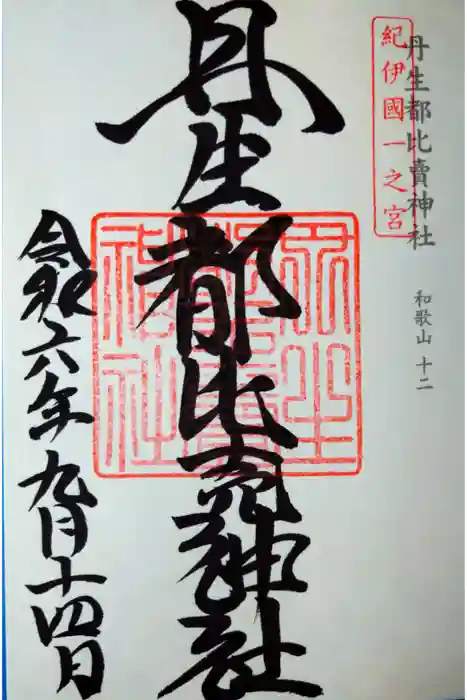 紀伊國一之宮
丹生都比賣神社
和歌山 十二
丹生都比売神社
丹生都比賣神社
令和六年九月十四日